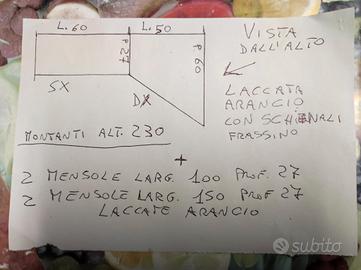 L.60
L.50
P 27
P 60
SX
DX
VISTA
DALL'ALTO
LACCATA
ARANCIO
CON SCHIENALI
FRASSINO
MONTANTI ALT. 230
+
2 MENSOLE LARG. 100 PROF. 27
2 MENSOLE LARG. 150 PROF 27
LACCATE ARANCIO
subito